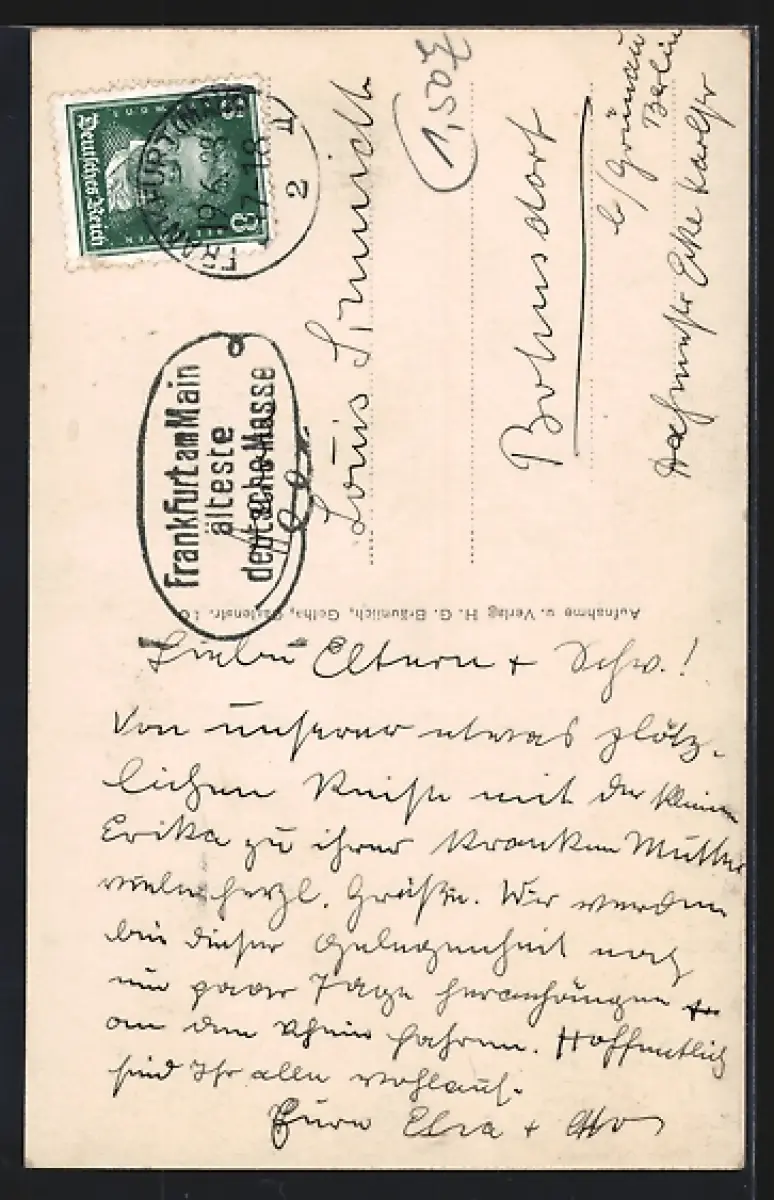 Deutsches Reich
8
FRANKFURT (MAIN)
19.6.28
17-18
2
Frankfurt am Main
älteste
deutsche Messe
1,50
Herrn
Louis
Bohnsdorf
b/Grünau
Berlin
Ecke
Aufnahme u. Verlag H. G. Bräunlich, Gotha, Gartenstr. 10
Lieben Eltern + Schw.!
Von unserer etwas plötz-
lichen Reise mit der kleinen
Erika zu ihrer kranken Mutter
viele herzl. Grüße. Wir werden
bei dieser Gelegenheit noch
ein paar Tage heranhängen +
an den Rhein fahren. Hoffentlich
seid Ihr alle wohlauf.
Eure Elsa + Otto